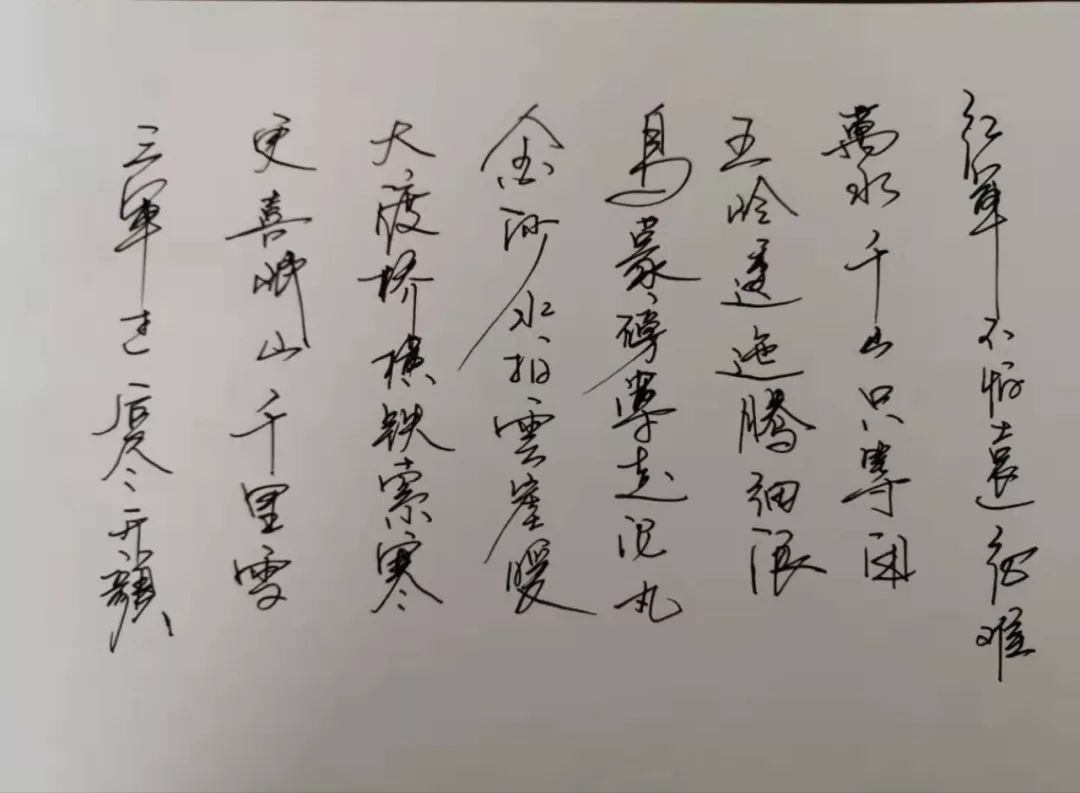 红軍不怕遠征难
萬水千山只等闲
五岭逶迤腾细浪
烏蒙磅礴走泥丸
金沙水拍雲崖暖
大渡桥横铁索寒
更喜岷山千里雪
三軍过后尽开颜